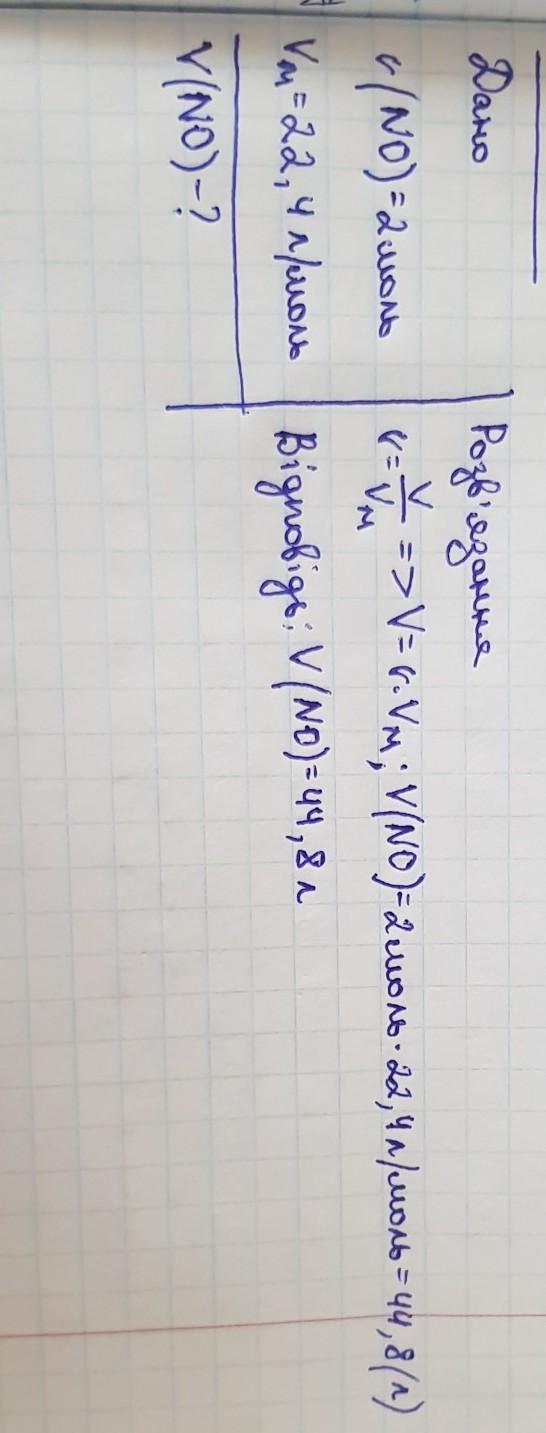 Дано
ν(NO)=2моль
Vм=22,4 л/моль
V(NO)-?
Розв'язання
ν=V/Vм => V=ν·Vм; V(NO)=2моль·22,4л/моль=44,8(л)
Відповідь: V(NO)=44,8л